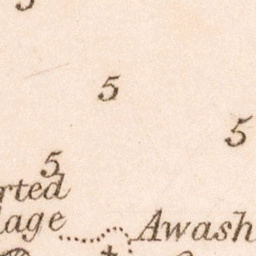 5
5
5
5
rted
lage
Awash